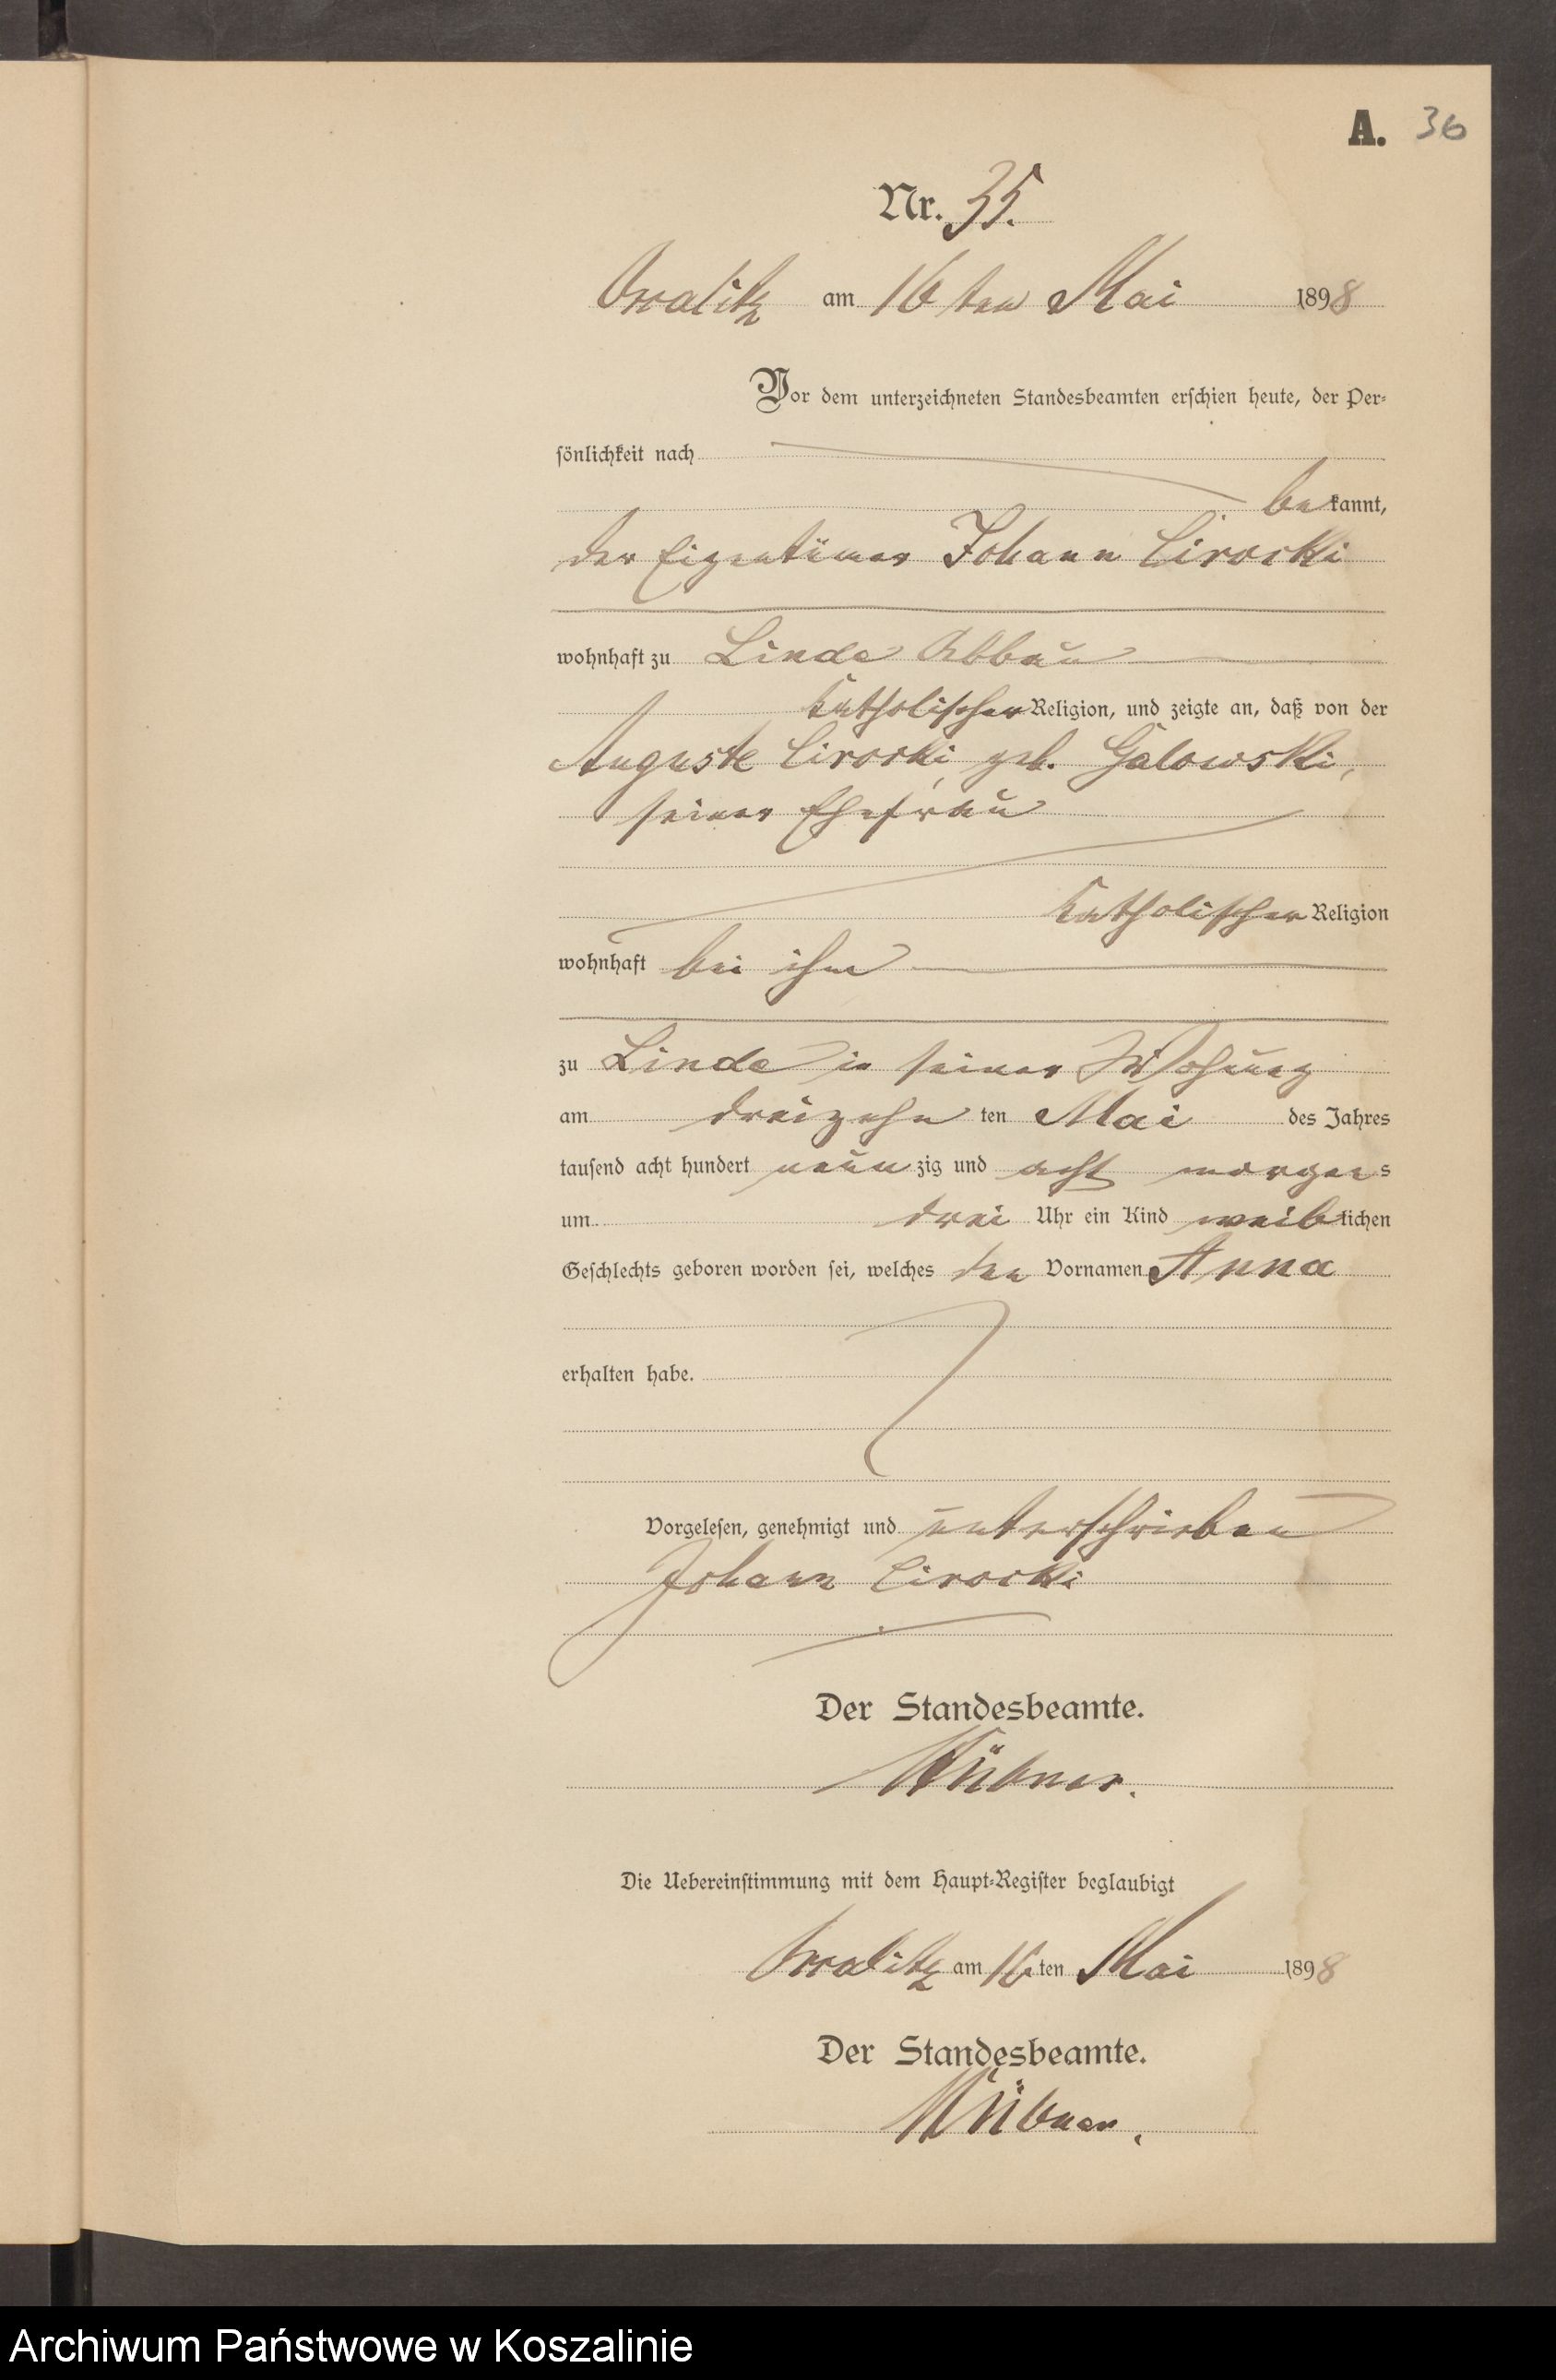 A. 36
Nr. 35.
am 16 ten Mai 1898
Vor dem unterzeichneten Standesbeamten erschien heute, der Per-
sönlichkeit nach
bekannt,
der Eigentümer Johann Cirocki
wohnhaft zu Linde Abbau
katholischer Religion, und zeigte an, daß von der
Auguste Cirocki, geb. Galowski,
seiner Ehefrau
katholischer Religion
wohnhaft bei ihm
zu Linde in seiner Wohnung
am dreizehn ten Mai des Jahres
tausend acht hundert neunzig und acht morgens
um drei Uhr ein Kind weiblichen
Geschlechts geboren worden sei, welches den Vornamen Anna
erhalten habe.
Vorgelesen, genehmigt und unterschrieben
Johann Cirocki
Der Standesbeamte.
Die Uebereinstimmung mit dem Haupt-Register beglaubigt
am 16 ten Mai 1898
Der Standesbeamte.
Archiwum Państwowe w Koszalinie